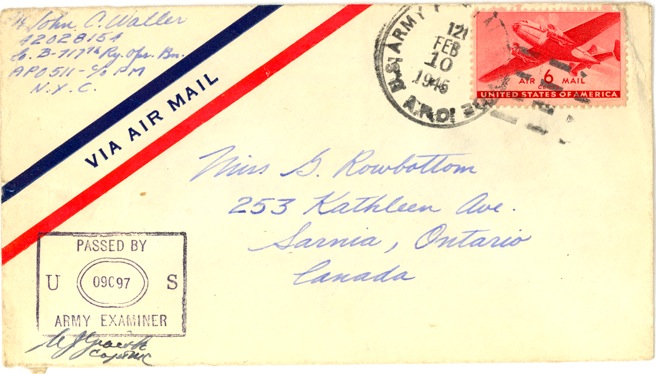 John C. Waller
42028154
Co. B-717th Ry. Ops. Bn.
APO 511 - c/o PM
N.Y.C.
VIA AIR MAIL
ARMY
FEB
10
1945
6
AIR MAIL
UNITED STATES OF AMERICA
Miss G. Rowbottom
253 Kathleen Ave.
Sarnia, Ontario
Canada
PASSED BY
U 09097 S
ARMY EXAMINER